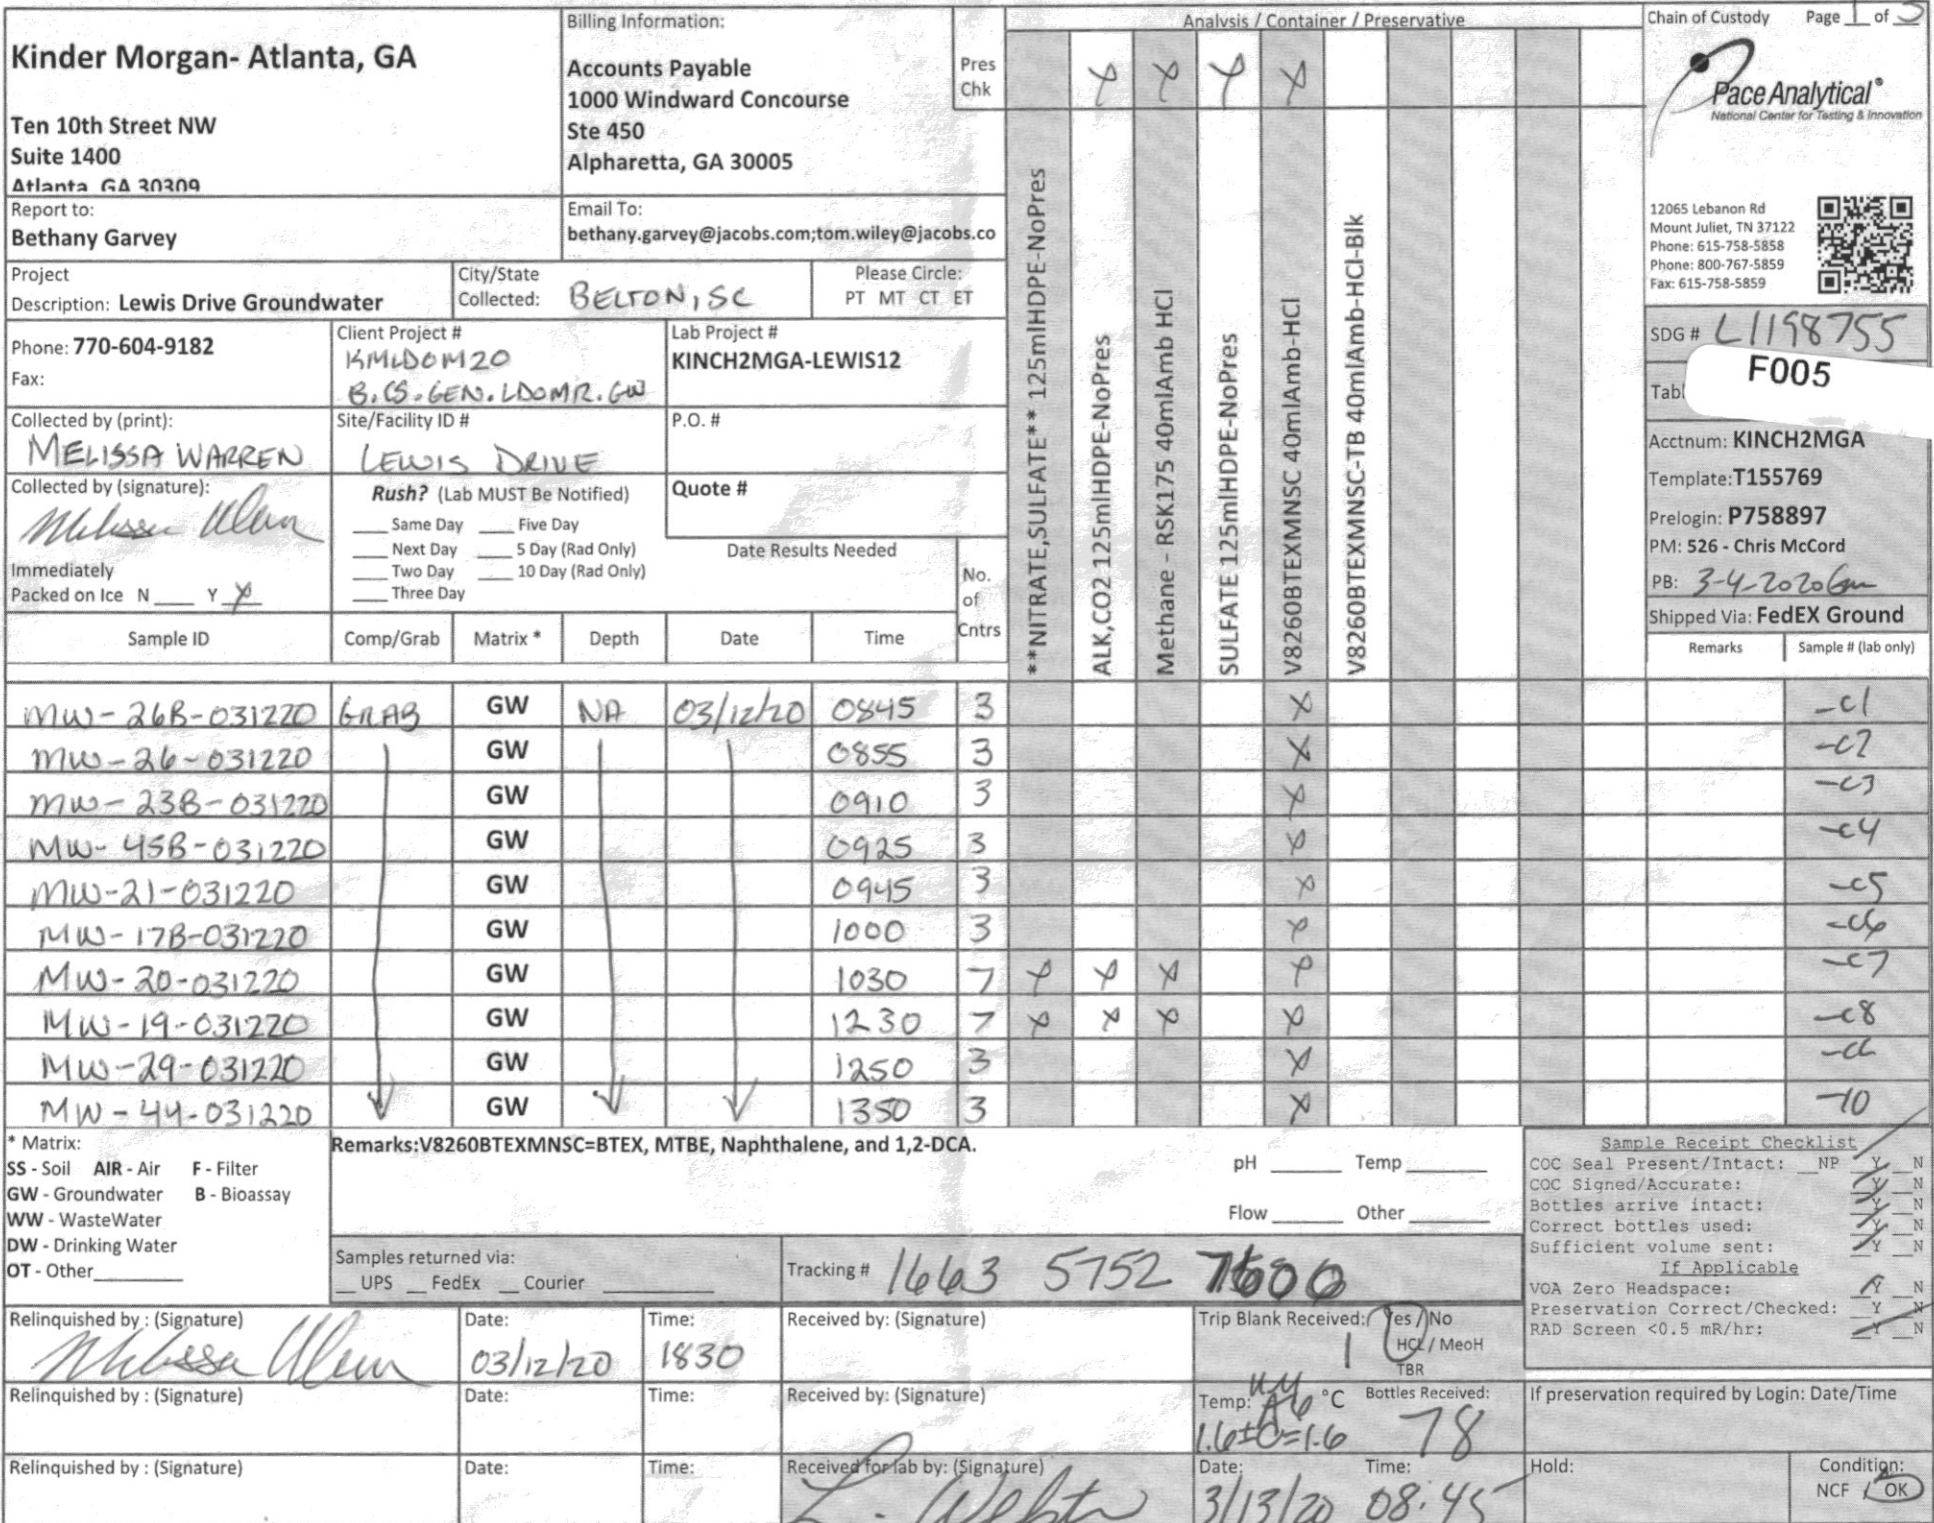 Kinder Morgan- Atlanta, GA
Ten 10th Street NW
Suite 1400
Atlanta, GA 30309
Billing Information:
Accounts Payable
1000 Windward Concourse
Ste 450
Alpharetta, GA 30005
Pres
Chk
Analysis / Container / Preservative
Chain of Custody Page 1 of 3
Pace Analytical®
National Center for Testing & Innovation
12065 Lebanon Rd
Mount Juliet, TN 37122
Phone: 615-758-5858
Phone: 800-767-5859
Fax: 615-758-5859
Report to:
Bethany Garvey
Email To:
bethany.garvey@jacobs.com;tom.wiley@jacobs.co
Project
Description: Lewis Drive Groundwater
City/State
Collected: BELTON, SC
Please Circle:
PT MT CT ET
Phone: 770-604-9182
Fax:
Client Project #
KMLDOM20
B.CS.GEN.LDOMR.GW
Lab Project #
KINCH2MGA-LEWIS12
Collected by (print):
MELISSA WARREN
Site/Facility ID #
LEWIS DRIVE
P.O. #
Collected by (signature):
Rush? (Lab MUST Be Notified)
___ Same Day ___ Five Day
___ Next Day ___ 5 Day (Rad Only)
___ Two Day ___ 10 Day (Rad Only)
___ Three Day
Quote #
Date Results Needed
Immediately
Packed on Ice N ___ Y X
No.
of
Cntrs
**NITRATE,SULFATE** 125mlHDPE-NoPres
ALK,CO2 125mlHDPE-NoPres
Methane - RSK175 40mlAmb HCl
SULFATE 125mlHDPE-NoPres
V8260BTEXMNSC 40mlAmb-HCl
V8260BTEXMNSC-TB 40mlAmb-HCl-Blk
X X X X
SDG # L1198755
F005
Tabl
Acctnum: KINCH2MGA
Template: T155769
Prelogin: P758897
PM: 526 - Chris McCord
PB: 3-4-2020
Shipped Via: FedEX Ground
Remarks Sample # (lab only)
Sample ID Comp/Grab Matrix * Depth Date Time
MW-26B-031220 GRAB GW NA 03/12/20 0845 3 X -01
MW-26-031220 GW 0855 3 X -02
MW-23B-031220 GW 0910 3 X -03
MW-45B-031220 GW 0925 3 X -04
MW-21-031220 GW 0945 3 X -05
MW-17B-031220 GW 1000 3 X -06
MW-20-031220 GW 1030 7 X X X X -07
MW-19-031220 GW 1230 7 X X X X -08
MW-29-031220 GW 1250 3 X
MW-44-031220 GW 1350 3 X -10
* Matrix:
SS - Soil AIR - Air F - Filter
GW - Groundwater B - Bioassay
WW - WasteWater
DW - Drinking Water
OT - Other
Remarks:V8260BTEXMNSC=BTEX, MTBE, Naphthalene, and 1,2-DCA.
pH ___ Temp ___
Flow ___ Other ___
Samples returned via:
__ UPS __ FedEx __ Courier
Tracking # 1663 5752 7600
Sample Receipt Checklist
COC Seal Present/Intact: __ NP Y __ N
COC Signed/Accurate: Y __ N
Bottles arrive intact: Y __ N
Correct bottles used: Y __ N
Sufficient volume sent: Y __ N
If Applicable
VOA Zero Headspace: Y __ N
Preservation Correct/Checked: Y __ N
RAD Screen <0.5 mR/hr: Y __ N
Relinquished by : (Signature)
Date: 03/12/20
Time: 1830
Received by: (Signature)
Trip Blank Received: Yes / No
1
HCL / MeoH
TBR
Relinquished by : (Signature)
Date:
Time:
Received by: (Signature)
Temp: °C
1.6±0=1.6
Bottles Received:
78
If preservation required by Login: Date/Time
Relinquished by : (Signature)
Date:
Time:
Received for lab by: (Signature)
Date: 3/13/20
Time: 08:45
Hold:
Condition:
NCF / OK